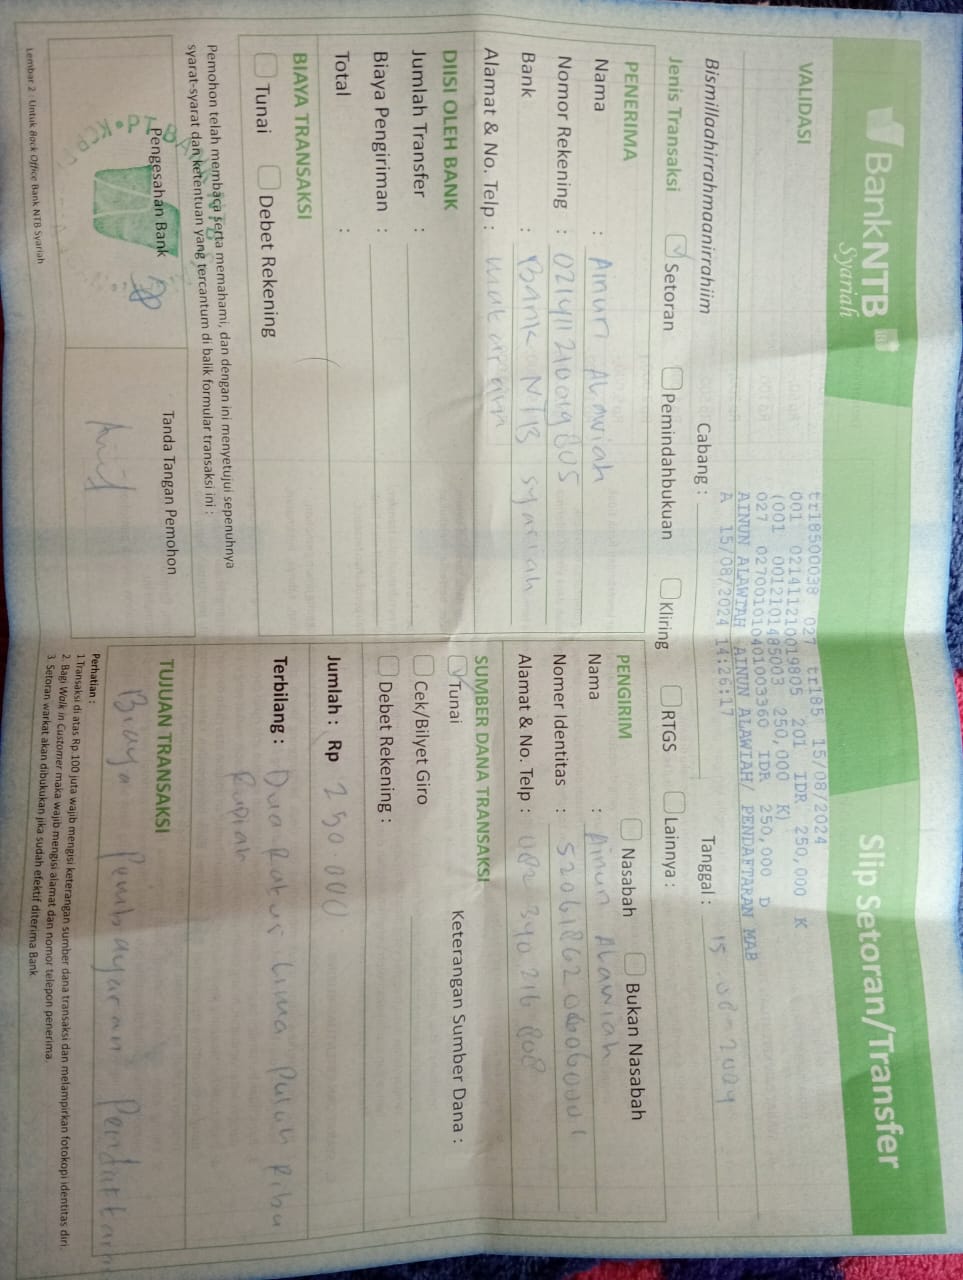 BankNTB
Syariah
Slip Setoran/Transfer
VALIDASI
tr18500038 027 tr185 15/08/2024
001 021411210019805 201 IDR 250,000 K
(001 0012101485003 250,000 K)
027 027001010401003360 IDR 250,000 D
AINUN ALAWIAH AINUN ALAWIAH/ PENDAFTARAN MAB
A 15/08/2024 14:26:17
Bismillaahirrahmaanirrahiim
Cabang :
Tanggal : 15-08-2024
Jenis Transaksi
Setoran
Pemindahbukuan
Kliring
RTGS
Lainnya :
PENERIMA
Nama : Ainun Alawiah
Nomor Rekening : 021411210019805
Bank : Bank NTB syariah
Alamat & No. Telp : Mataram
PENGIRIM
Nasabah
Bukan Nasabah
Nama : Ainun Alawiah
Nomer Identitas :
Alamat & No. Telp : 082 340 216 808
DIISI OLEH BANK
Jumlah Transfer :
Biaya Pengiriman :
Total :
SUMBER DANA TRANSAKSI
Tunai
Keterangan Sumber Dana :
Cek/Bilyet Giro
Debet Rekening :
BIAYA TRANSAKSI
Tunai
Debet Rekening
Jumlah : Rp 250.000
Terbilang : Dua Ratus Lima Puluh Ribu
Rupiah
Pemohon telah membaca serta memahami, dan dengan ini menyetujui sepenuhnya
syarat-syarat dan ketentuan yang tercantum di balik formular transaksi ini :
Pengesahan Bank
Tanda Tangan Pemohon
TUJUAN TRANSAKSI
Biaya Pembayaran Pendaftaran
Perhatian :
1. Transaksi di atas Rp.100 juta wajib mengisi keterangan sumber dana transaksi dan melampirkan fotokopi identitas diri.
2. Bagi Walk in Customer maka wajib mengisi alamat dan nomor telepon penerima.
3. Setoran warkat akan dibukukan jika sudah efektif diterima Bank
Lembar 2 : Untuk Back Office Bank NTB Syariah